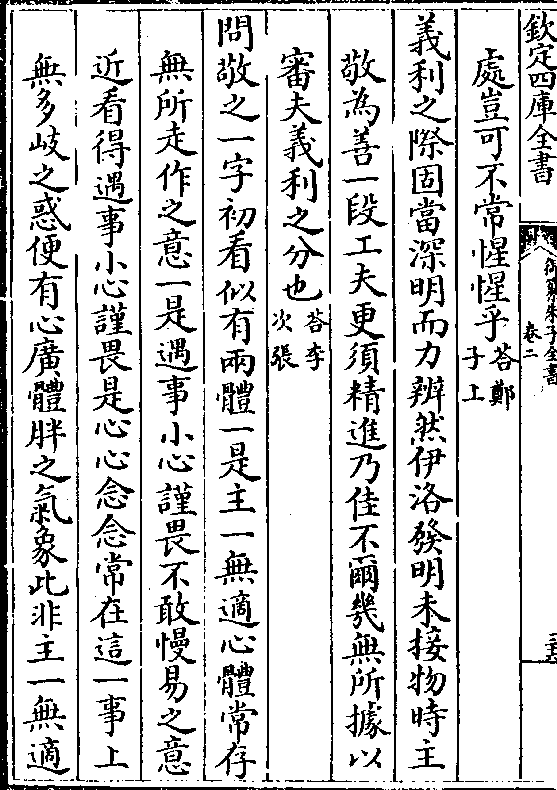 欽定四庫全書
御纂朱子全書 卷二
處豈可不常惺惺乎 答鄭子上
義利之際固當深明而力辨然伊洛發明未接物時主
敬為善一段工夫更須精進乃佳不爾幾無所據以
審夫義利之分也 答李次張
問敬之一字初看似有兩體一是主一無適心體常存
無所走作之意一是遇事小心謹畏不敢慢易之意
近看得遇事小心謹畏是心心念念常在這一事上
無多岐之惑便有心廣體胖之氣象此非主一無適